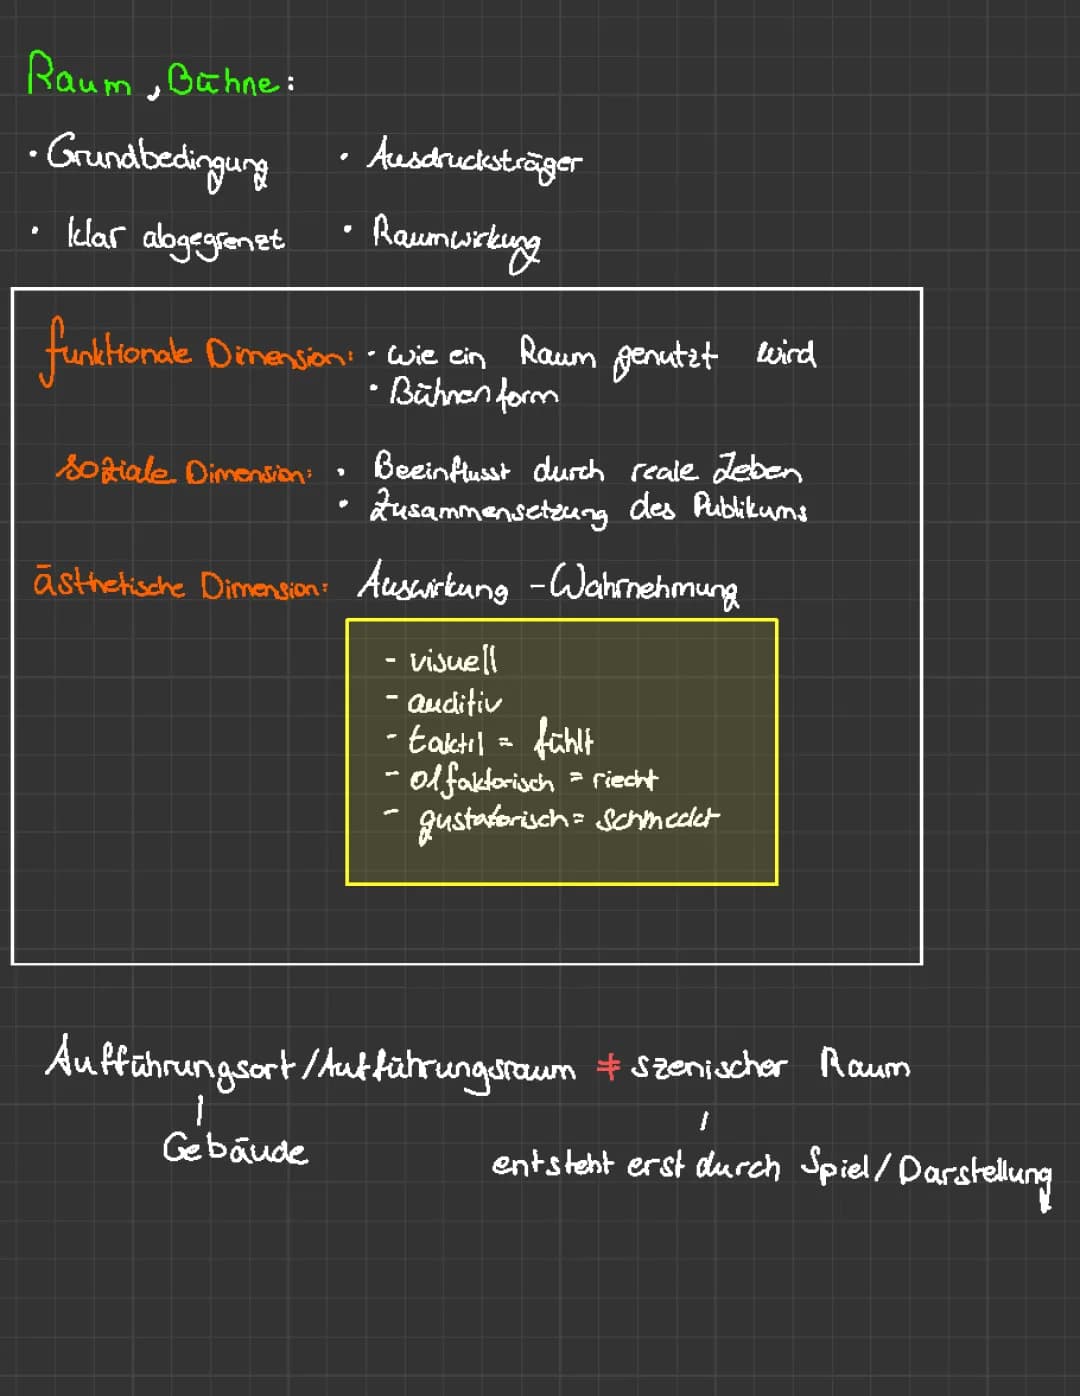 Raum, Bühne:
• Grundbedingung • Ausdrucksträger
• klar abgegrenzt • Raumwirkung
funktionale Dimension: • wie ein Raum genutzt wird
• Bühnenform
soziale Dimension: • Beeinflusst durch reale Leben
• Zusammensetzung des Publikums
ästhetische Dimension: Auswirkung - Wahrnehmung
- visuell
- auditiv
- taktil = fühlt
- olfaktorisch = riecht
- gustatorisch = schmeckt
Aufführungsort/Aufführungsraum ≠ szenischer Raum
Gebäude
entsteht erst durch Spiel/Darstellung